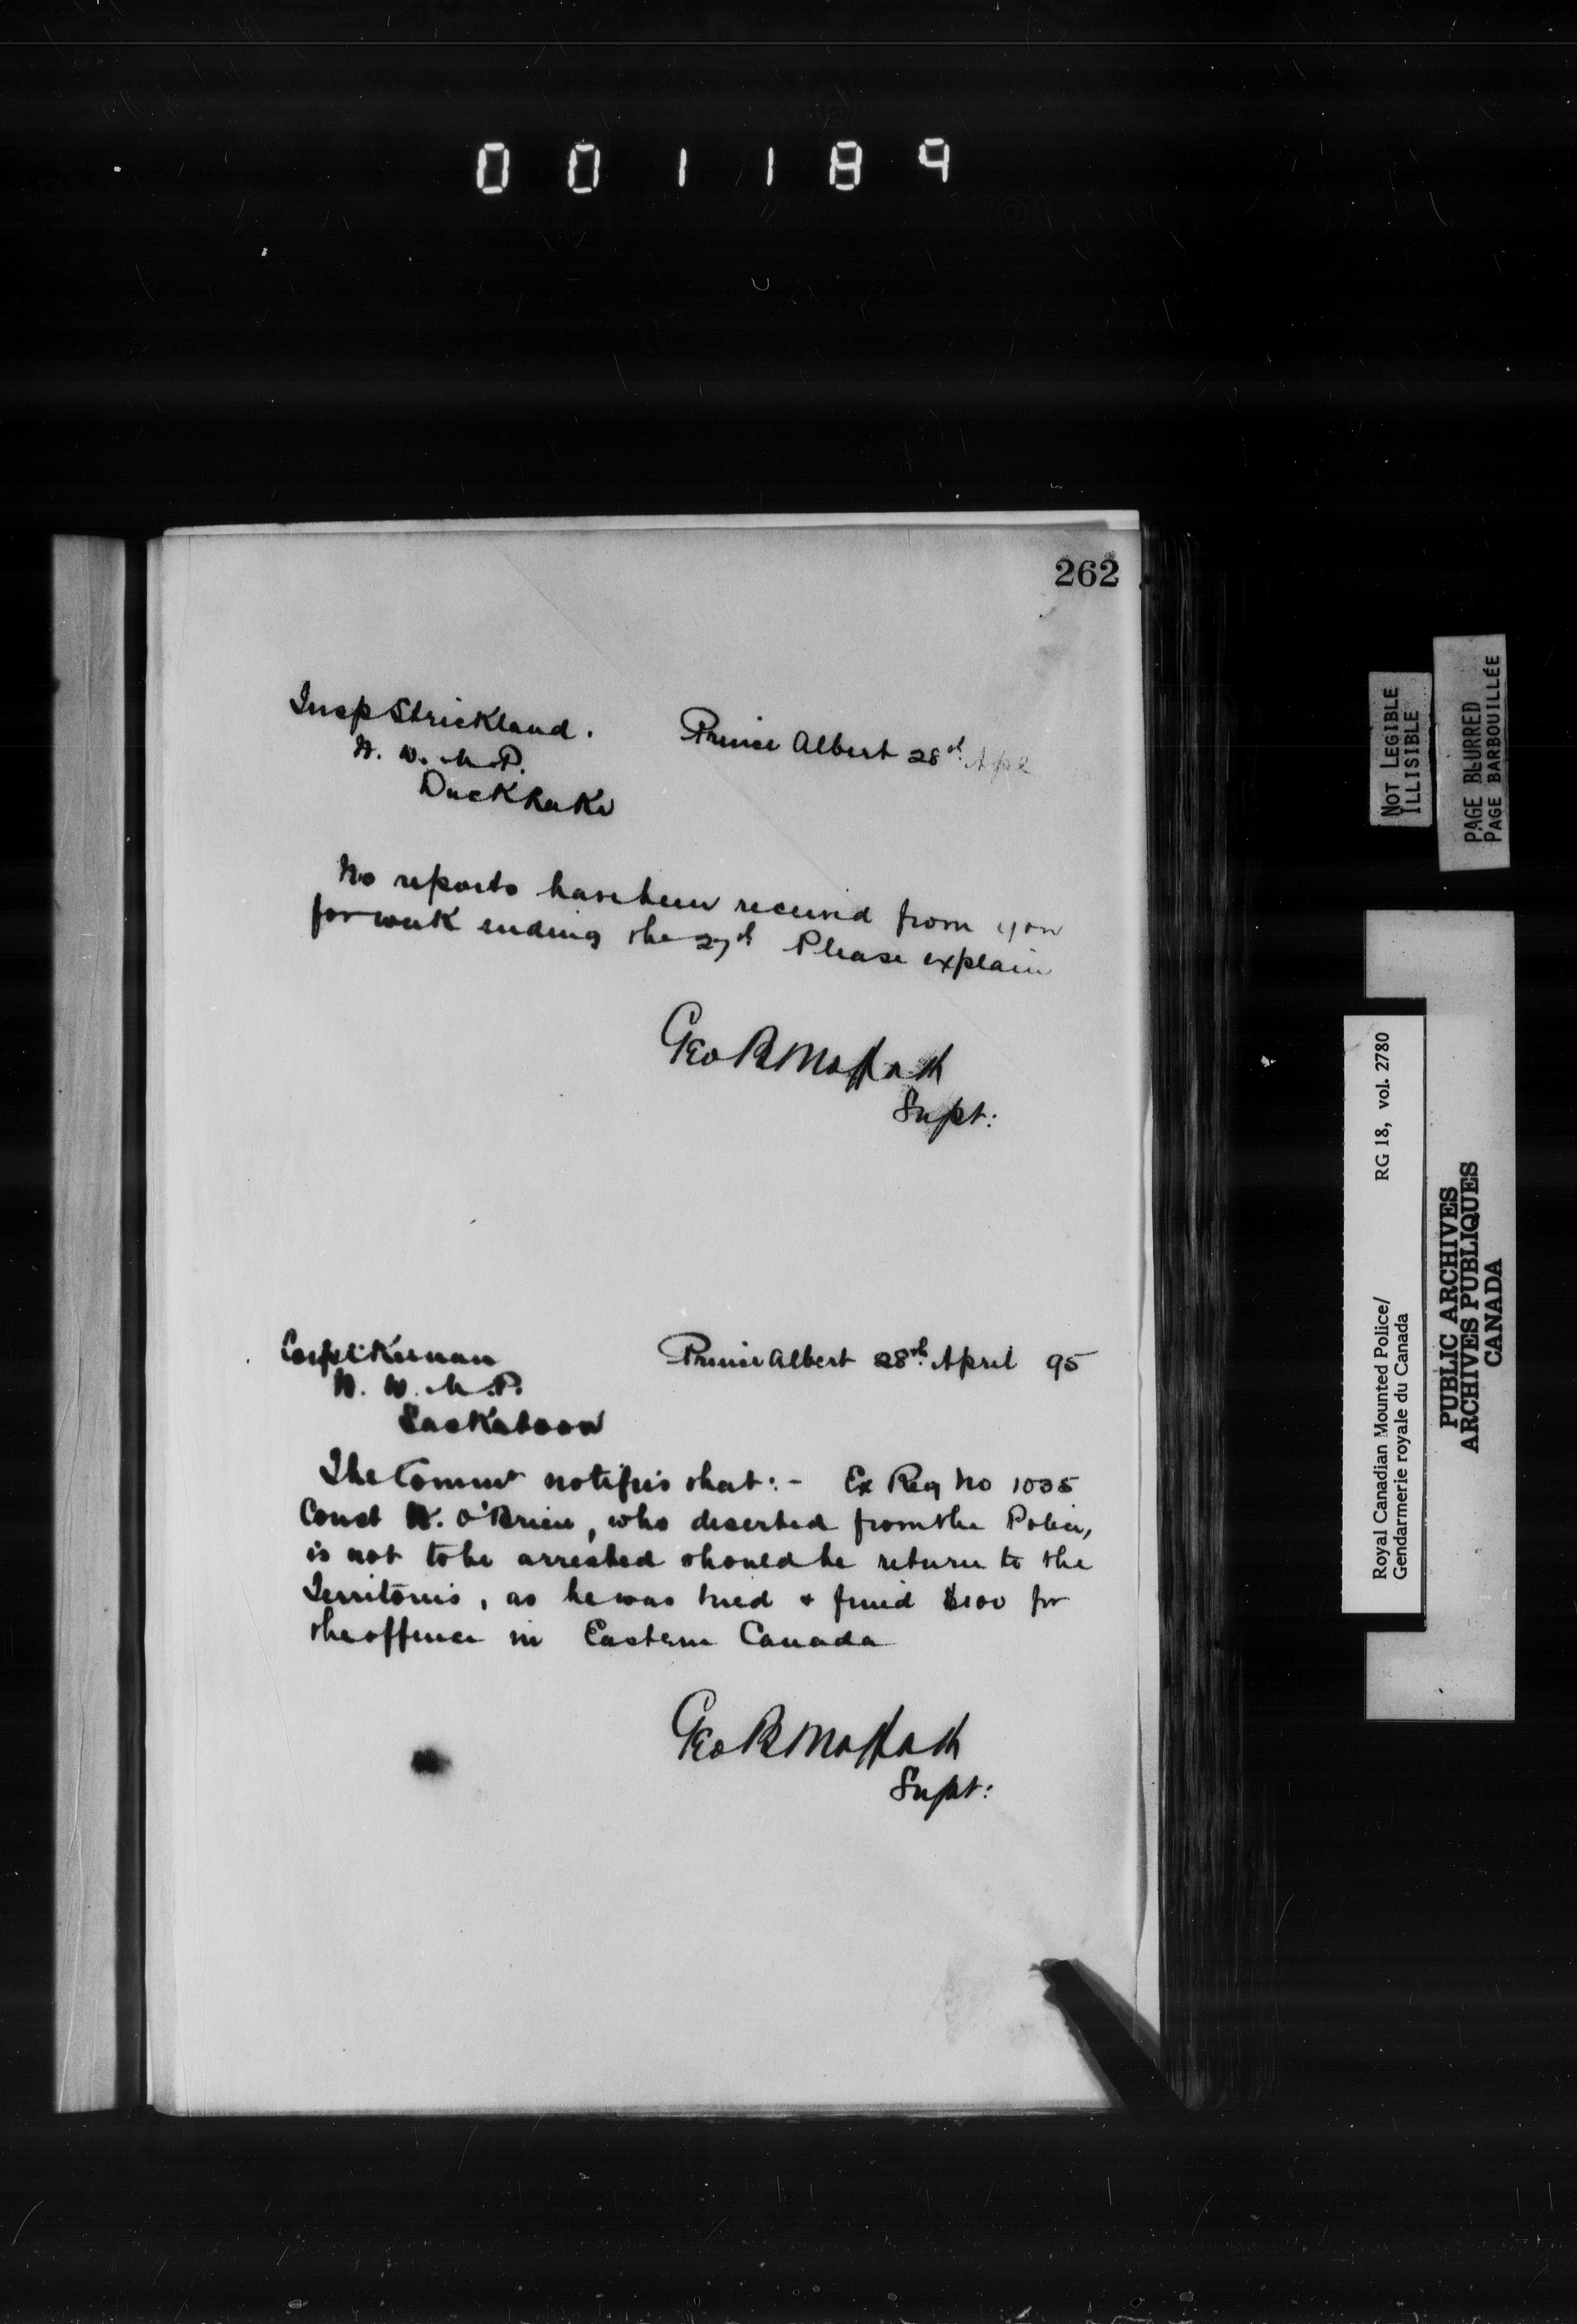 001189
262
Insp Strickland. Prince Albert 28th Apl
N. W. M. P.
Duck Lake
No reports have been received from you
for week ending the 27th Please explain
Geo B Moffatt
Supt:
Corpl: Keenan Prince Albert 28th April 95
N. W. M. P.
Saskatoon
The Commr notifies that:- Ex Reg No 1035
Const W. O'Brien, who deserted from the Police,
is not to be arrested should he return to the
Territories, as he was tried & fined $100 for
the offence in Eastern Canada
Geo B Moffatt
Supt:
NOT LEGIBLE
ILLISIBLE
PAGE BLURRED
PAGE BARBOUILLÉE
Royal Canadian Mounted Police/ RG 18, vol. 2780
Gendarmerie royale du Canada
PUBLIC ARCHIVES
ARCHIVES PUBLIQUES
CANADA